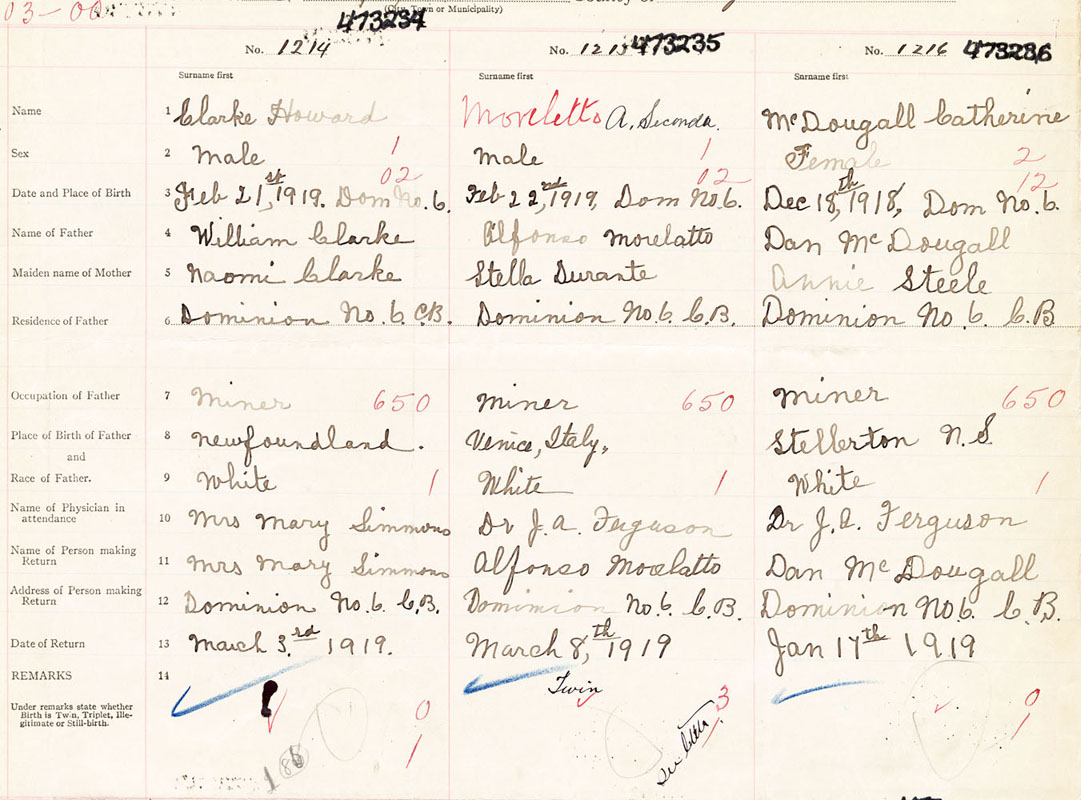 03-00
(City, Town or Municipality)
County of
473234
No. 1214
No. 1215
473235
No. 1216
473236
Surname first
Surname first
Surname first
Name 1 Clarke Howard Moreletto A, Seconda. McDougall Catherine
Sex 2 Male 1 Male 1 Female 2
02 02 12
Date and Place of Birth 3 Feb 21st, 1919. Dom No. 6. Feb 22nd, 1919, Dom No. 6. Dec 18th, 1918, Dom No. 6.
Name of Father 4 William Clarke Alfonso Morelatto Dan McDougall
Maiden name of Mother 5 Naomi Clarke Stella Durante Annie Steele
Residence of Father 6 Dominion No. 6 C.B. Dominion No. 6 C.B. Dominion No. 6 C.B
Occupation of Father 7 Miner 650 Miner 650 Miner 650
Place of Birth of Father 8 Newfoundland. Venice, Italy, Stellerton N.S.
and
Race of Father. 9 White 1 White 1 White 1
Name of Physician in
attendance 10 Mrs Mary Simmons Dr J. A. Ferguson Dr J. A. Ferguson
Name of Person making
Return 11 Mrs Mary Simmons Alfonso Morelatto Dan McDougall
Address of Person making
Return 12 Dominion No. 6 C.B. Dominion No. 6 C.B. Dominion No 6 C.B.
Date of Return 13 March 3.rd 1919. March 8,th 1919 Jan 17th 1919
REMARKS 14
Twin
Under remarks state whether
Birth is Twin, Triplet, Ille-
gitimate or Still-birth.
0
1
3
See letter
0
1
186